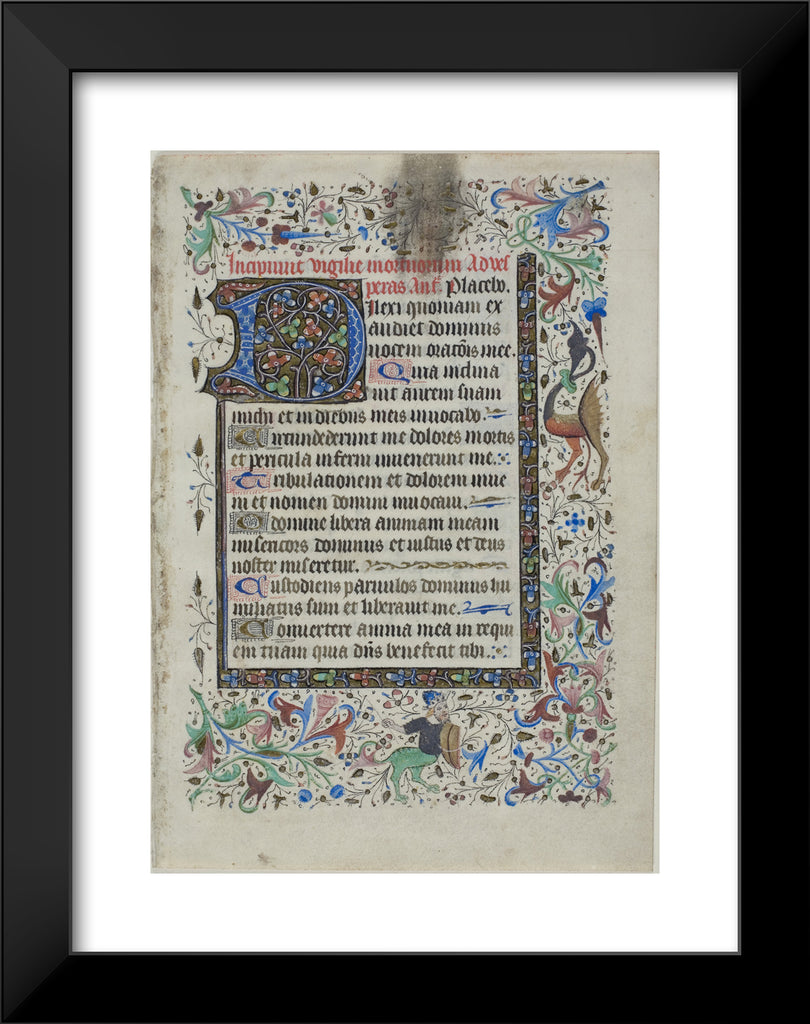 Incipiunt vigilie mortuorum Ad ves
peras Ant. Placebo.
Dilexi quoniam ex
audiet dominus
vocem orationis mee.
Quia inclina
uit aurem suam
michi et in diebus meis inuocabo.
Circundederunt me dolores mortis
et pericula inferni inuenerunt me.
Tribulationem et dolorem inue
ni et nomen domini inuocaui.
O domine libera animam meam
misericors dominus et iustus et deus
noster miseretur.
Custodiens paruulos dominus hu
miliatus sum et liberauit me.
Conuertere anima mea in requi
em tuam quia dns benefecit tibi.